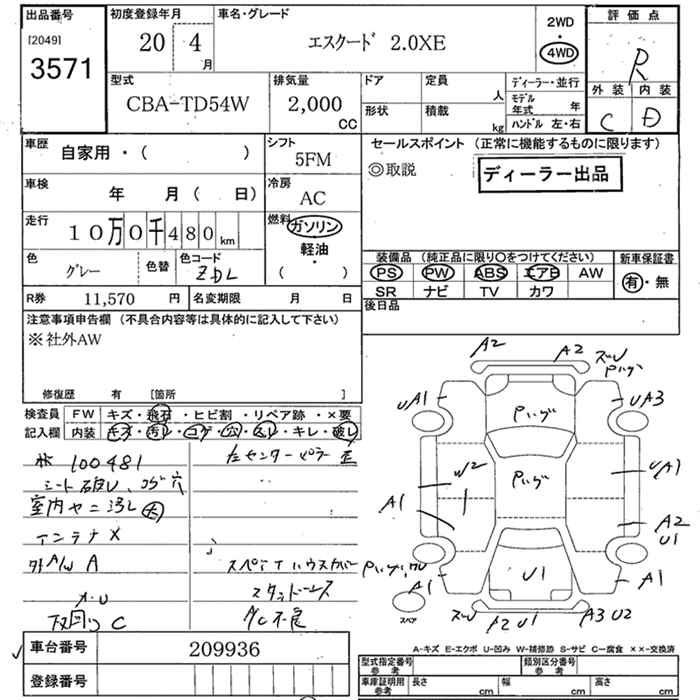 出品番号
[2049]
3571
初度登録年月
20 4
月
車名・グレード
エスクード 2.0XE
2WD
・
4WD
評価点
R
外装 内装
C D
型式
CBA-TD54W
排気量
2,000
CC
ドア
定員
人
形状
積載
kg
ディーラー・並行
モデル年式 年
ハンドル 左・右
車歴
自家用・( )
シフト
5FM
車検
年 月( 日)
冷房
AC
走行
10万0千480km
燃料
ガソリン
軽油
・
( )
色
グレー
色替
色コード
ZDL
R券 11,570 円
名変期限 月 日
セールスポイント (正常に機能するものに限ります)
◎取説
ディーラー出品
装備品 (純正品に限り〇をつけてください)
新車保証書
PS PW ABS エアB AW
有・無
SR ナビ TV カワ
後日品
注意事項申告欄 (不具合内容等は具体的に記入して下さい)
※社外AW
修復歴 有 [箇所 ]
検査員記入欄
FW キズ・飛石・ヒビ割・リペア跡・×要
内装 キズ・汚レ・コゲ・穴・スレ・キレ・破レ
100481
シート破レ、コゲ穴
室内ヤニ汚レ大
アンテナX
外A/W A
下回り C
スペアTハウスカバー
スタッドレス
A/C不良
A2 A2
UA1 UA3
Pハゲ
Pハゲ
W2 UA1
A1 A2
U1
U1
A1 A1
A2 U1 A3 U2
スペア
A-キズ E-エクボ U-凹み W-補修跡 S-サビ C-腐食 ××-交換済
車台番号 209936
登録番号
型式指定番号 参考
類別区分番号 参考
車庫証明用 参考
長さ cm 幅 cm 高さ cm